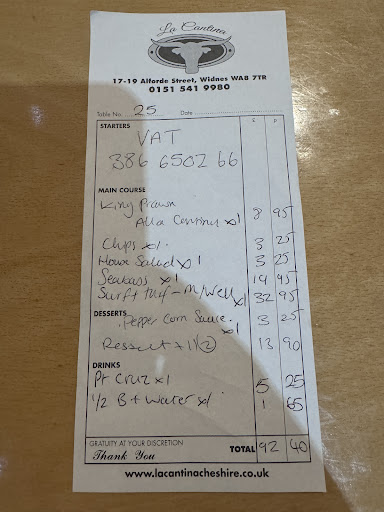 La Cantina
17-19 Alforde Street, Widnes WA8 7TR
0151 541 9980
Table No. 25 Date
£ p
STARTERS
VAT
386 6502 66
MAIN COURSE
King Prawn
Alla x1 8 95
Chips x1 3 25
House Salad x1 3 25
Seabass x1 19 95
Surf + turf - M/Well x1 32 95
DESSERTS
Pepper Corn Sauce 3 25
x1
x1 13 90
DRINKS
Pt Cruz x1 5 25
1/2 B + Water x1 1 65
GRATUITY AT YOUR DISCRETION
Thank You TOTAL 92 40
www.lacantinacheshire.co.uk